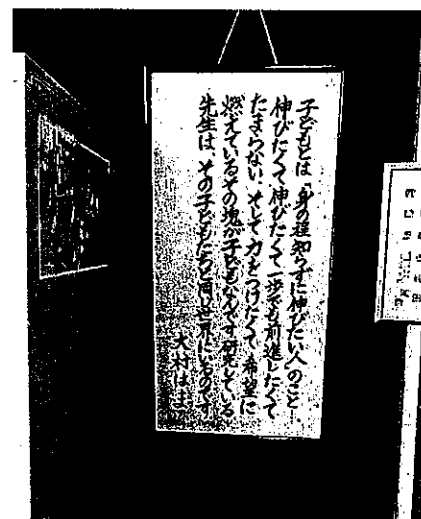 子どもとは「身の程知らずに伸びたい人」のこと
伸びたくて伸びたくて一歩でも前進したくて
たまらない、そして力をつけたくて、希望に
燃えているその塊が子どもなんです研究している
先生は、その子どもたちと同じ世界にいるのです
大村はま